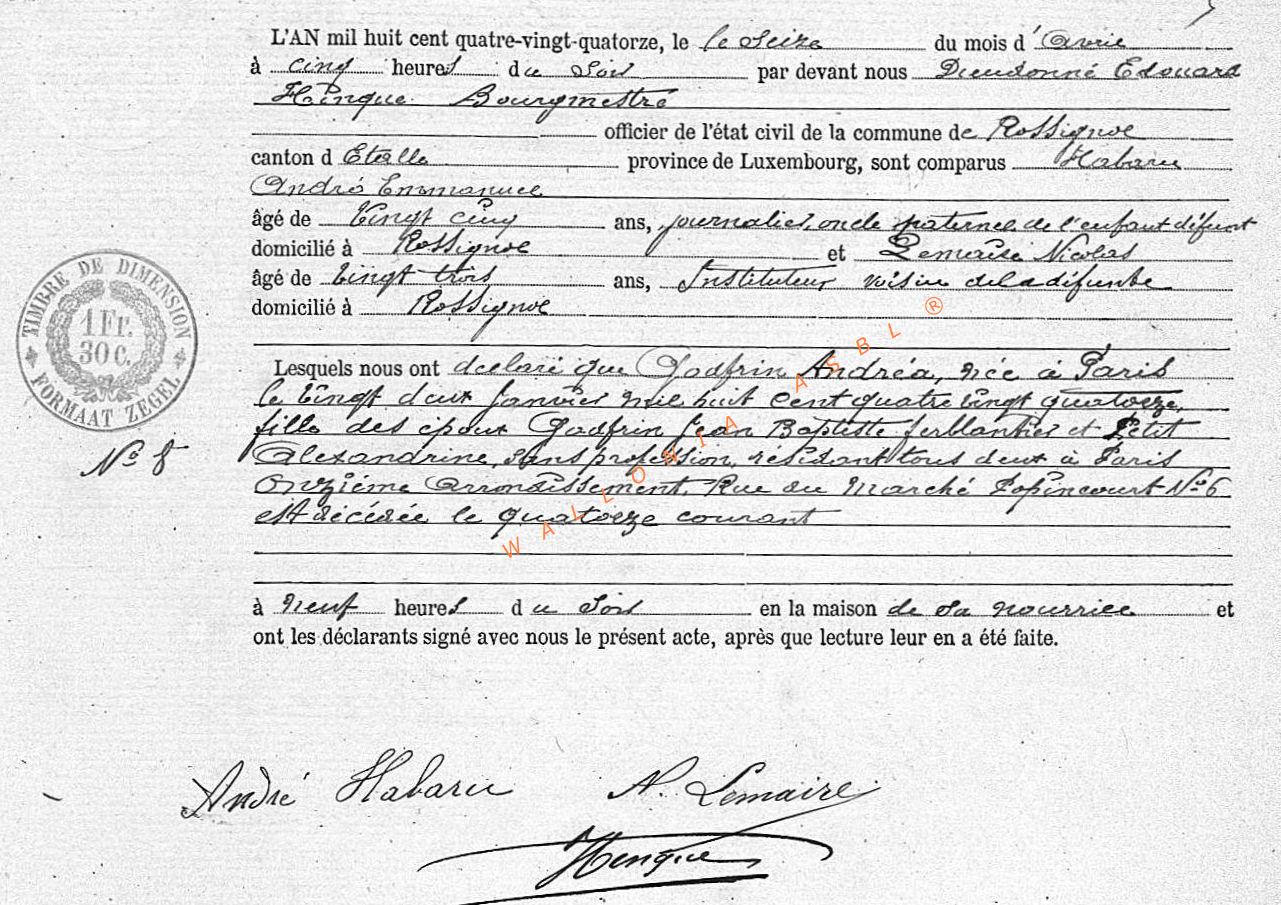 L'AN mil huit cent quatre-vingt-quatorze, le le Seize du mois d'Avril
à cinq heures du Soir par devant nous Dieudonné Edouard
Hinque Bourgmestre
officier de l'état civil de la commune de Rossignol
canton d Etalle province de Luxembourg, sont comparus Habaru
André Emmanuel
âgé de Vingt cinq ans, journalier, oncle paternel de l'enfant défunt
domicilié à Rossignol et Lemaire Nicolas
âgé de Vingt trois ans, Instituteur voisin de la défunte
domicilié à Rossignol
Lesquels nous ont déclaré que Godfrin Andréa, née à Paris
le Vingt deux Janvier mil huit cent quatre vingt quatorze,
fille des époux Godfrin Jean Baptiste ferblantier et Petit
Alexandrine, sans profession, résidant tous deux à Paris
Onzième arrondissement, Rue du Marché Popincourt No 6
est décédée le quatorze courant
à Neuf heures du Soir en la maison de sa nourrice et
ont les déclarants signé avec nous le présent acte, après que lecture leur en a été faite.
TIMBRE DE DIMENSION
1 Fr.
30 C.
FORMAAT ZEGEL
No 8
WALLONIA ASBL ®
André Habaru N. Lemaire
Henque